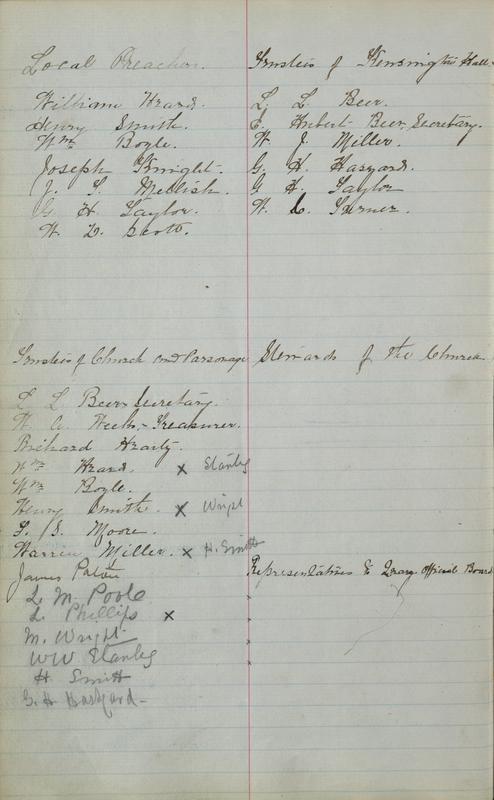 Local Preachers.
William Heard.
Henry Smith.
Wm Boyle.
Joseph Knight.
J. S. Mellish.
G. H. Taylor.
W. D. Scott.
Trustees of Kensington Hall.
L. L. Beer.
E. Herbert Beer, Secretary.
W. J. Miller.
G. H. Haszard.
G. H. Taylor
W. C. Turner.
Trustees of Church and Parsonage
L L Beer Secretary.
W. A. Weeks - Treasurer.
Richard Hearty.
Wm Heard. x Stanley
Wm Boyle.
Henry Smith. x Wright
S. S. Moore.
Warren Miller. x H. Smith
James Paton
L. M. Poole
L. Phillips x
M. Wright
WW Stanley
H. Smith
G. H. Haszard -
Stewards of the Church
Representatives to Quar. Official Board